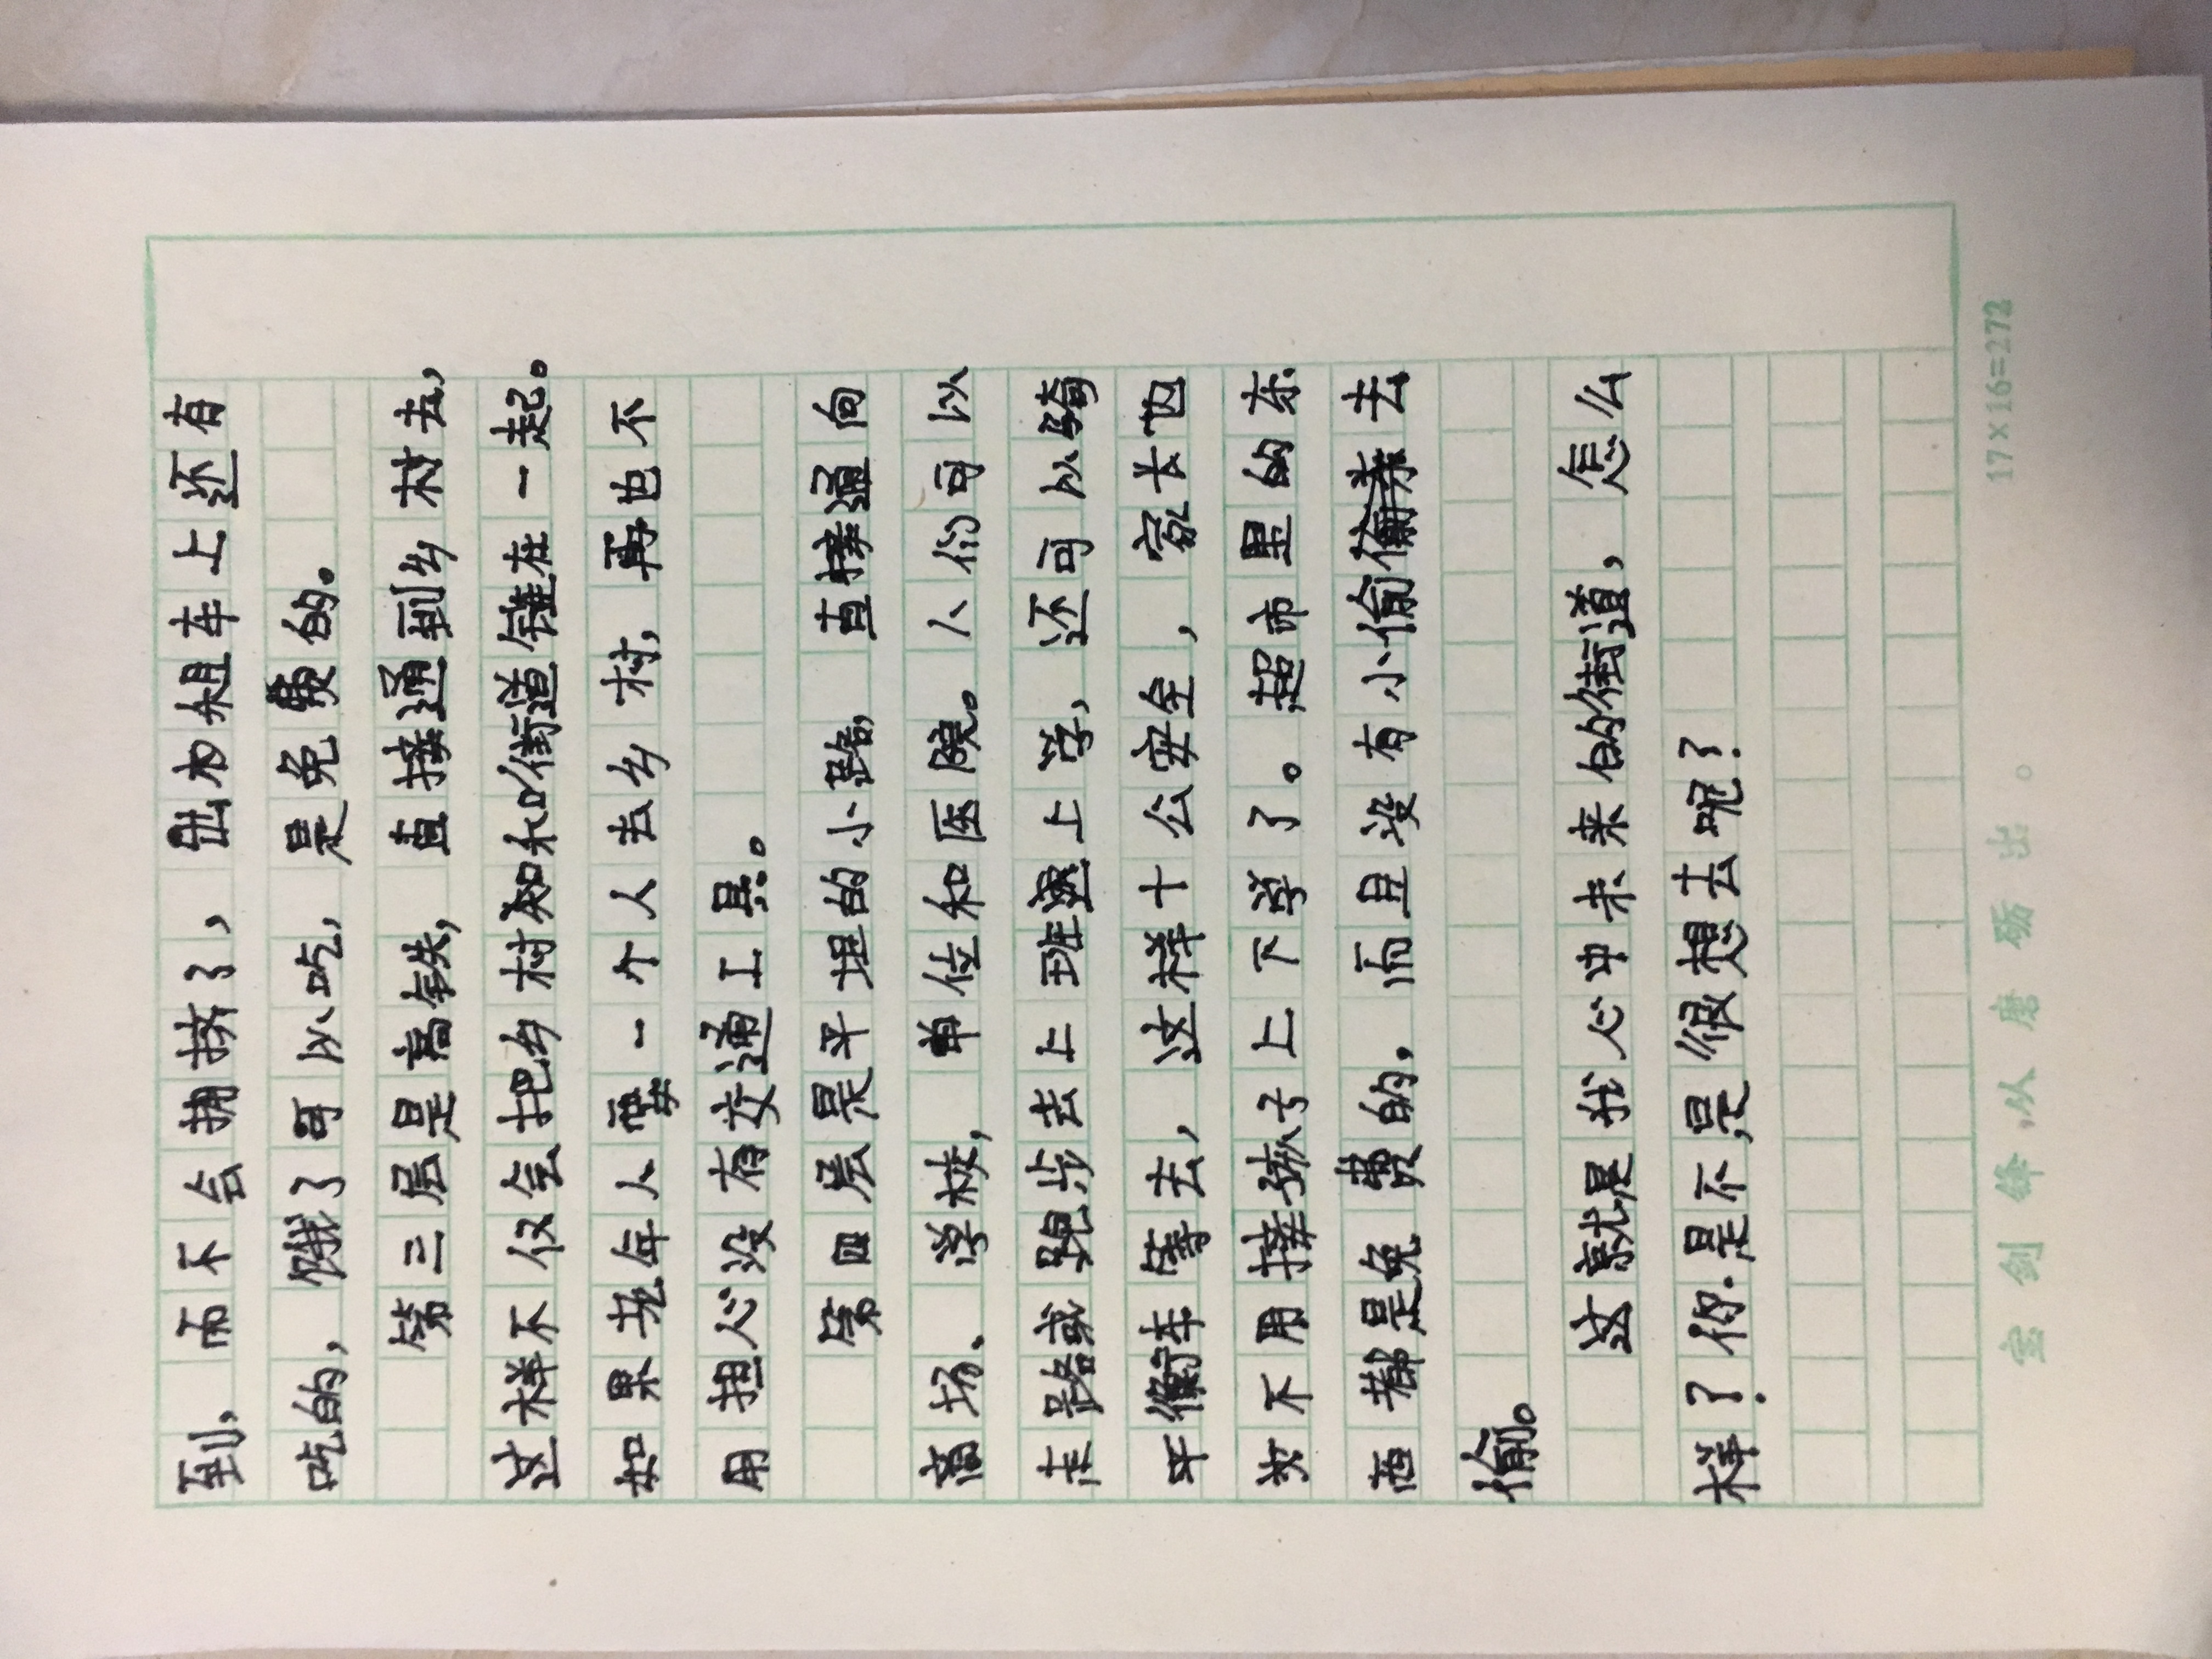 到，而不会拥挤了，出租车上还有
吃的，饿了可以吃，是免费的。
第三层是高铁，直接通到乡村去，
这样不仅会把乡村和街道链在一起。
如果老年人要一个人去乡村，再也不
用担心没有交通工具。
第四层是平坦的小路，直接通向
商场、学校，单位和医院。人们可以
走路或跑步去上班上学，还可以骑
平衡车等去，这样十公安全，家长也
必不用接孩子上下学了。超市里的东
西都是免费的，而且没有小偷偷去
偷。
这就是我心中未来的街道，怎么
样？你是不是很想去呢？
17×16=272
宝剑锋,从磨砺出。